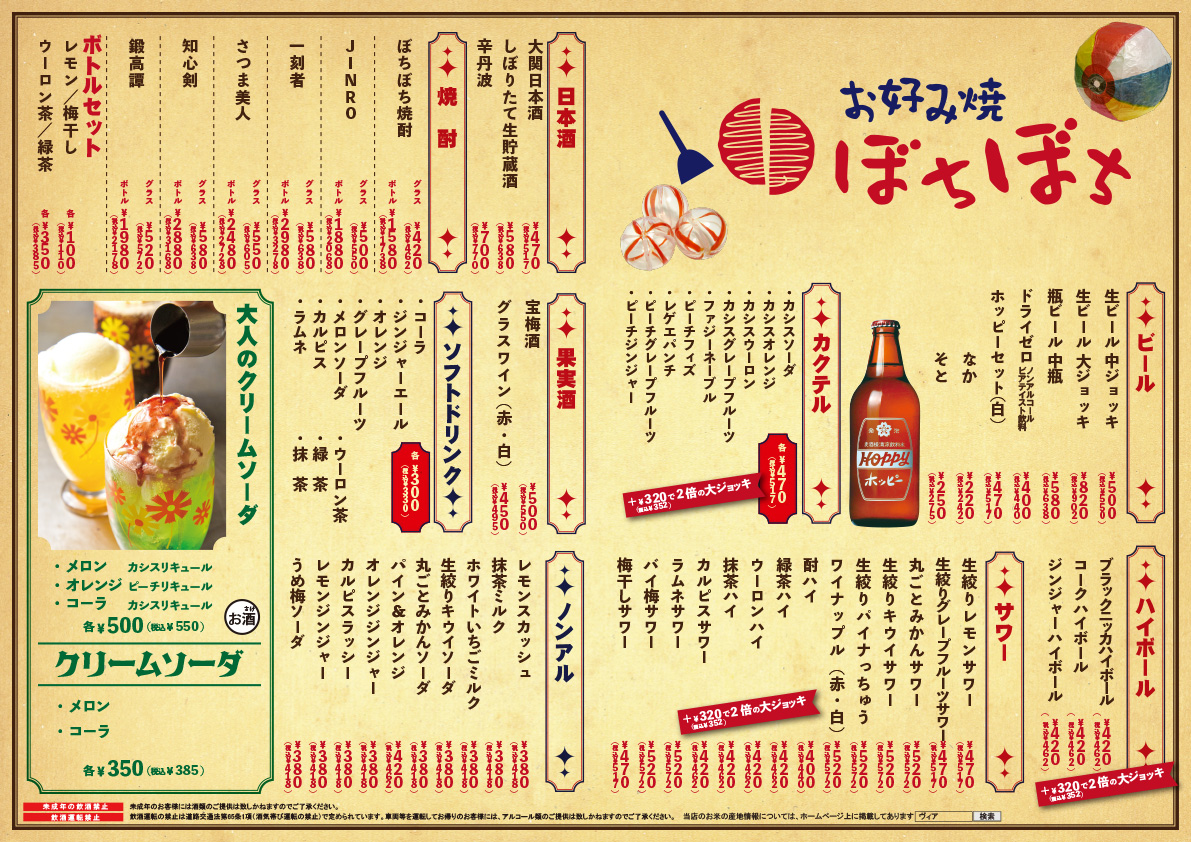 お好み焼
ぼちぼち
ビール
生ビール 中ジョッキ ¥550（税込¥605）
生ビール 大ジョッキ ¥820（税込¥902）
瓶ビール 中瓶 ¥580（税込¥638）
ドライゼロ ノンアルコールビアテイスト飲料 ¥400（税込¥440）
ホッピーセット（白） ¥470（税込¥517）
なか ¥220（税込¥242）
そと ¥250（税込¥275）
HOPPY
ホッピー
カクテル
・カシスソーダ
・カシスオレンジ
・カシスウーロン
・カシスグレープフルーツ
・ファジーネーブル
・ピーチフィズ
・レゲエパンチ
・ピーチグレープフルーツ
・ピーチジンジャー
各¥470（税込¥517）
＋¥320で2倍の大ジョッキ
（税込¥352）
ハイボール
ブラックニッカハイボール ¥420（税込¥462）
コークハイボール ¥420（税込¥462）
ジンジャーハイボール ¥420（税込¥462）
＋¥320で2倍の大ジョッキ
（税込¥352）
サワー
生絞りレモンサワー ¥470（税込¥517）
生絞りグレープフルーツサワー ¥520（税込¥572）
丸ごとみかんサワー ¥520（税込¥572）
生絞りキウイサワー ¥520（税込¥572）
生絞りパイナっちゅう ¥520（税込¥572）
ワイナップル（赤・白） ¥520（税込¥572）
酎ハイ ¥400（税込¥440）
緑茶ハイ ¥420（税込¥462）
ウーロンハイ ¥420（税込¥462）
抹茶ハイ ¥420（税込¥462）
カルピスサワー ¥420（税込¥462）
ラムネサワー ¥520（税込¥572）
バイ梅サワー ¥520（税込¥572）
梅干しサワー ¥470（税込¥517）
＋¥320で2倍の大ジョッキ
（税込¥352）
日本酒
大関日本酒 ¥470（税込¥517）
しぼりたて生貯蔵酒 ¥580（税込¥638）
辛丹波 ¥700（税込¥770）
焼酎
ぼちぼち焼酎 グラス ¥420（税込¥462） ボトル ¥1580（税込¥1738）
JINRO グラス ¥500（税込¥550） ボトル ¥1880（税込¥2068）
一刻者 グラス ¥580（税込¥638） ボトル ¥2980（税込¥3278）
さつま美人 グラス ¥550（税込¥605） ボトル ¥2480（税込¥2728）
知心剣 グラス ¥580（税込¥638） ボトル ¥2880（税込¥3168）
鍛高譚 グラス ¥520（税込¥572） ボトル ¥1980（税込¥2178）
ボトルセット
レモン／梅干し 各¥100（税込¥110）
ウーロン茶／緑茶 各¥350（税込¥385）
果実酒
宝梅酒 ¥500（税込¥550）
グラスワイン（赤・白） ¥450（税込¥495）
ソフトドリンク
・コーラ
・ジンジャーエール
・オレンジ
・グレープフルーツ
・メロンソーダ
・カルピス
・ラムネ
・ウーロン茶
・緑茶
・抹茶
各¥300（税込¥330）
ノンアル
レモンスカッシュ ¥380（税込¥418）
抹茶ミルク ¥380（税込¥418）
ホワイトいちごミルク ¥380（税込¥418）
生絞りキウイソーダ ¥380（税込¥418）
丸ごとみかんソーダ ¥380（税込¥418）
パイン＆オレンジ ¥420（税込¥462）
オレンジジンジャー ¥380（税込¥418）
カルピスラッシー ¥380（税込¥418）
レモンジンジャー ¥380（税込¥418）
うめ梅ソーダ ¥380（税込¥418）
大人のクリームソーダ
・メロン カシスリキュール
・オレンジ ピーチリキュール
・コーラ カシスリキュール
各¥500（税込¥550）
お酒
クリームソーダ
・メロン
・コーラ
各¥350（税込¥385）
未成年の飲酒禁止 未成年のお客様には酒類のご提供は致しかねますのでご了承ください。
飲酒運転禁止 飲酒運転の禁止は道路交通法第65条1項（酒気帯び運転の禁止）で定められています。車両等を運転してお帰りのお客様には、アルコール類のご提供は致しかねますのでご了承ください。 当店のお米の産地情報については、ホームページ上に掲載してあります ヴィア 検索